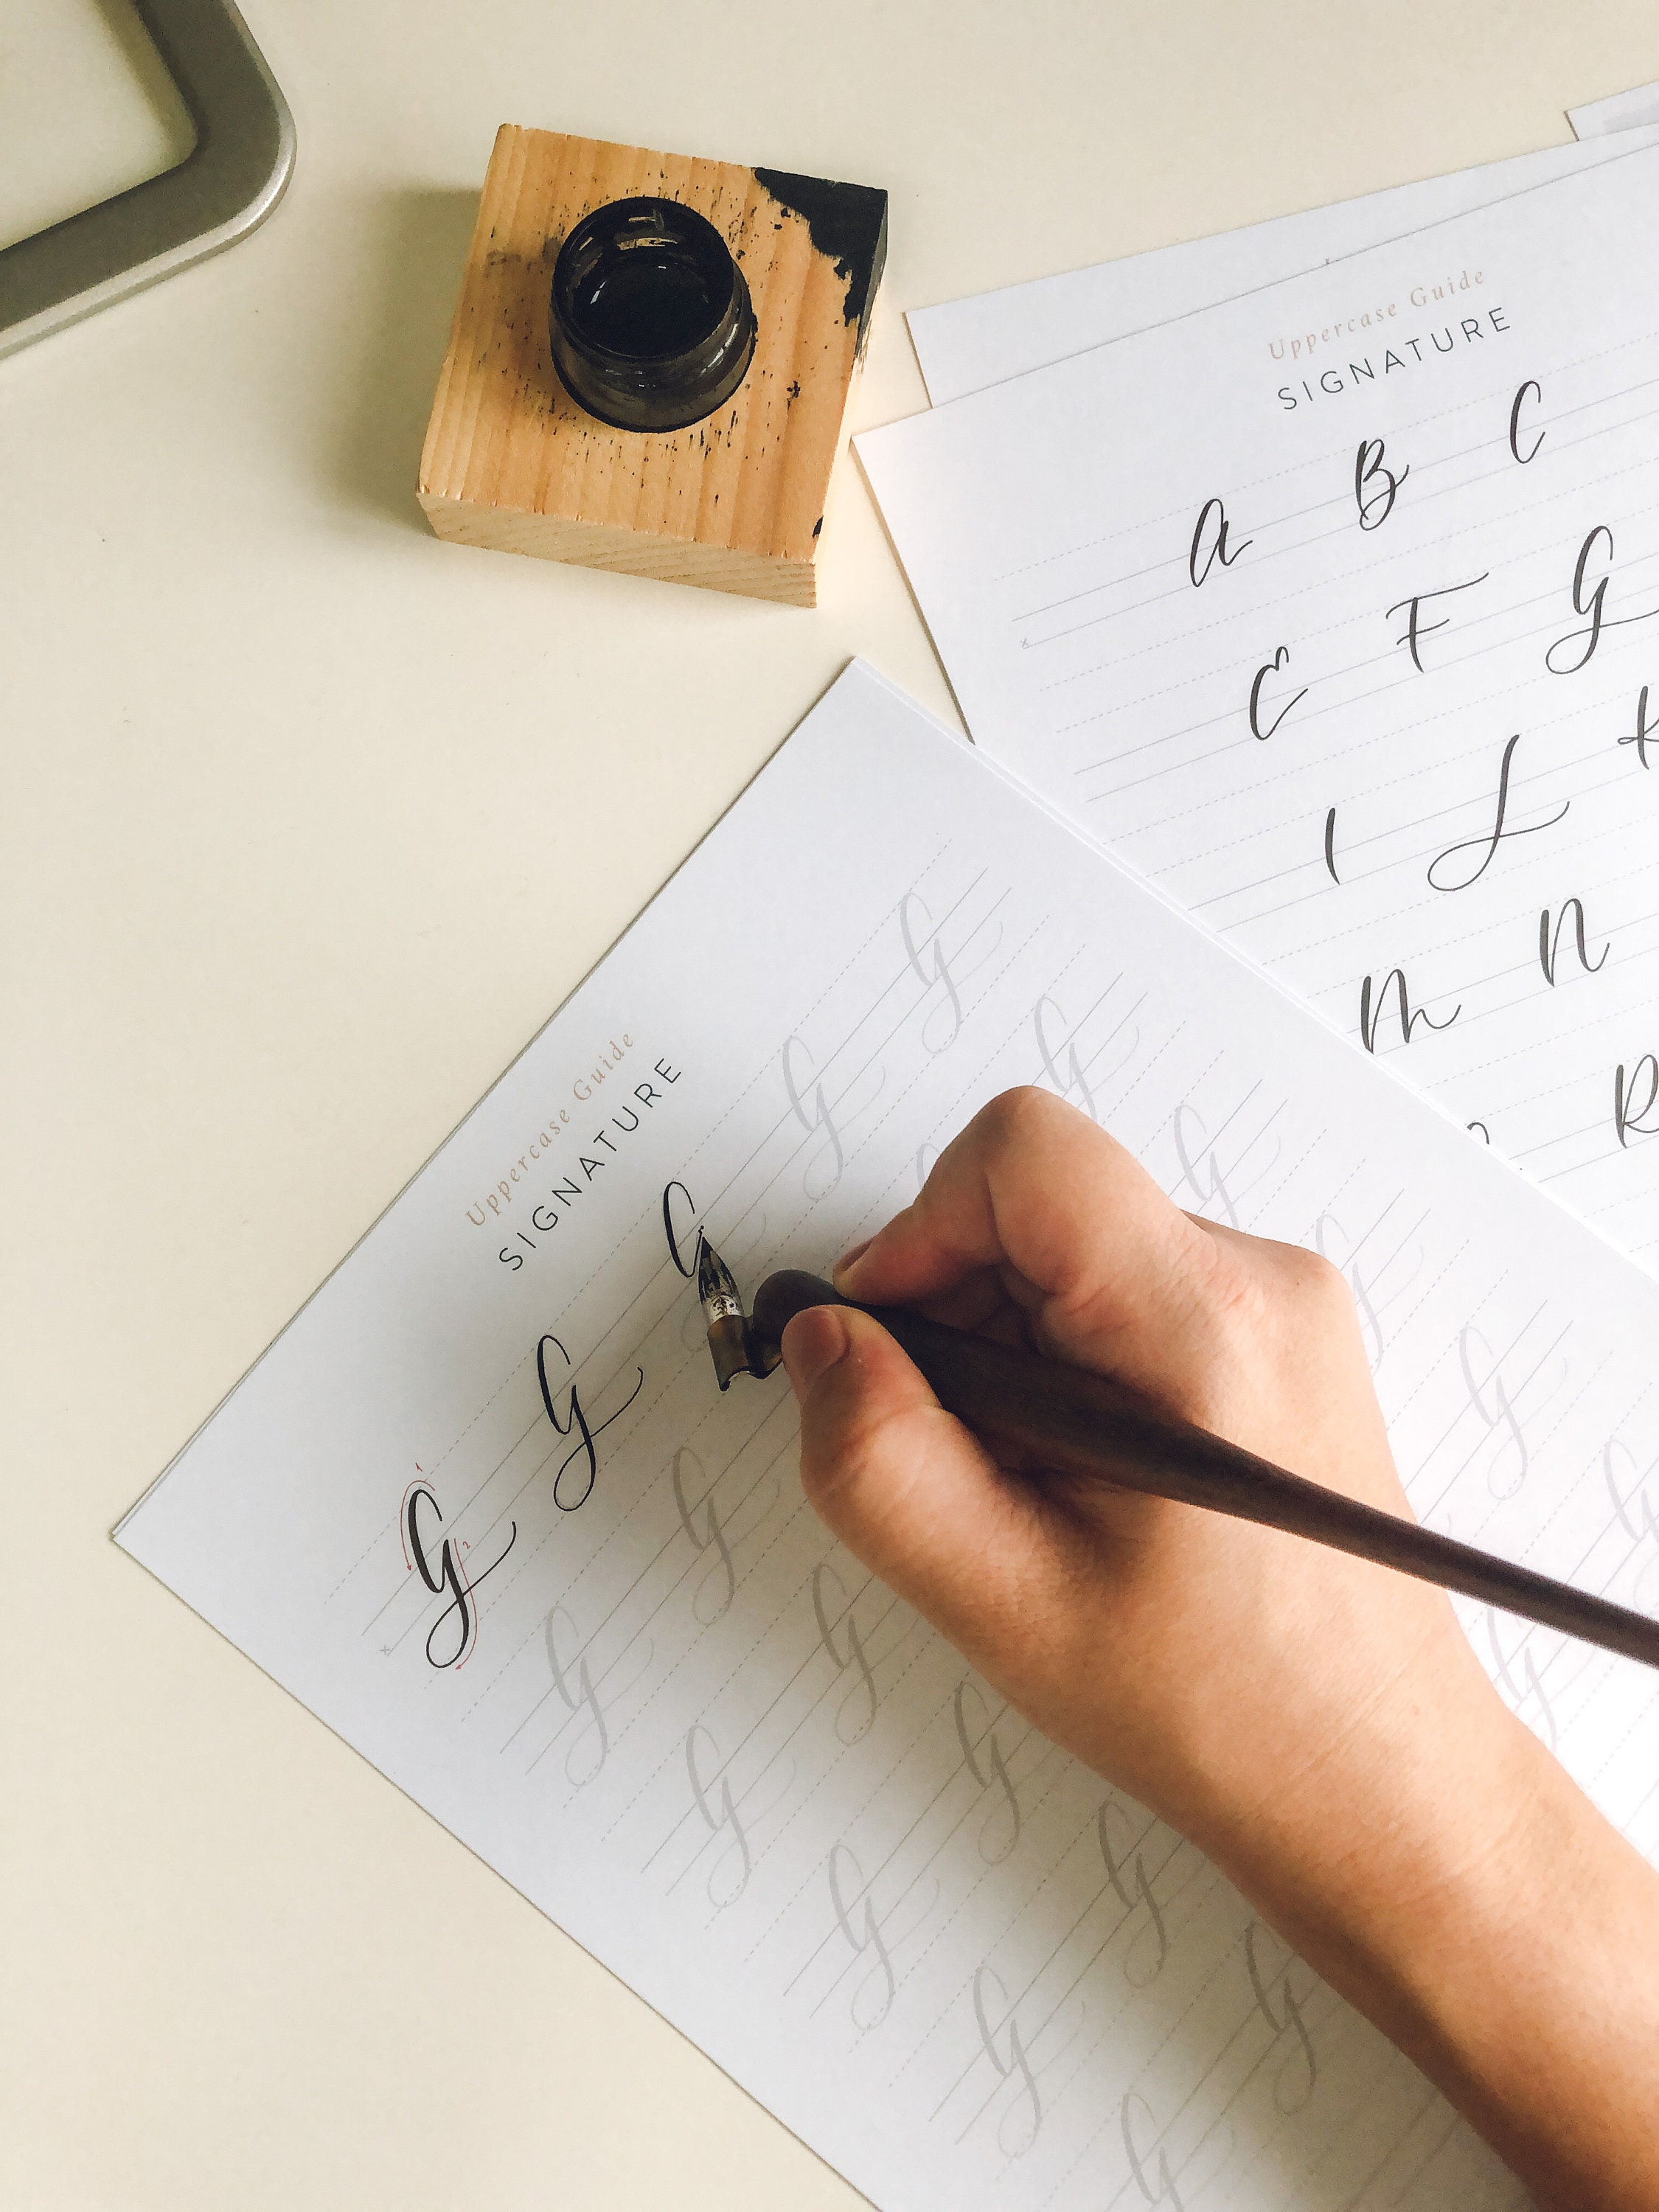 Uppercase Guide
SIGNATURE
A B C
E F G
I L K
M N
R
Uppercase Guide
SIGNATURE
G G G G G
G G G
G G G
G G G
G G G
G G
G